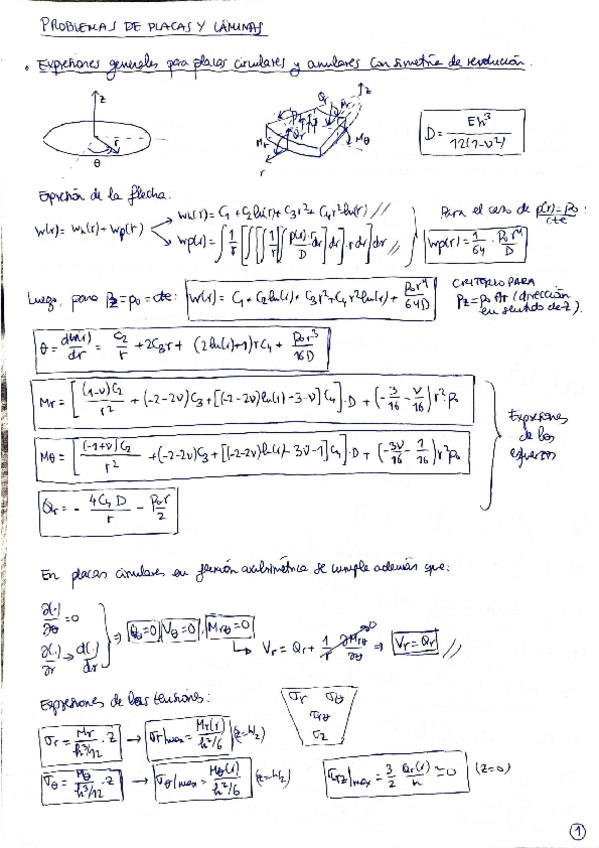 PROBLEMAS DE PLACAS Y LÁMINAS
• Expresiones generales para placas circulares y anulares con simetría de revolución.
z
r
θ
Qr
Mr
Mθ
z
r
D = Eh³ / 12(1-ν²)
Expresión de la flecha:
w(r) = wh(r) + wp(r)
wh(r) = C1 + C2 ln(r) + C3 r² + C4 r² ln(r) //
wp(r) = ∫ 1/r [∫ [∫ [1/r ∫ p(r)·r/D dr] dr] · r dr] dr //
Para el caso de p(r) = p0 cte :
wp(r) = 1/64 · p0 r⁴/D
Luego, para pz = p0 = cte:
w(r) = C1 + C2 ln(r) + C3 r² + C4 r² ln(r) + p0 r⁴/64D
CRITERIO PARA
pz = p0 ↑r (dirección
en sentido de z).
θ = dw(r)/dr = C2/r + 2C3 r + (2 ln(r) + 1) r C4 + p0 r³/16D
Mr = [(1-ν)C2/r² + (-2-2ν)C3 + [(-2-2ν) ln(r) - 3 - ν] C4] · D + (-3/16 - ν/16) r² · p0
Mθ = [(-1+ν)C2/r² + (-2-2ν)C3 + [(-2-2ν) ln(r) - 3ν - 1] C4] · D + (-3ν/16 - 1/16) r² p0
Expresiones
de los
esfuerzos
Qr = - 4C4 D/r - p0 r/2
En placas circulares en flexión axilsimétrica se cumple además que:
∂(·)/∂θ = 0
∂(·)/∂r → d(·)/dr
⇒ Qθ = 0, Vθ = 0, Mrθ = 0
↳ Vr = Qr + 1/r ∂Mrθ/∂θ → 0 ⇒ Vr = Qr //
Expresiones de las tensiones:
σr σθ
τrθ
σz
σr = Mr/(h³/12) · z → σr|max = Mr(r)/(h²/6) (z=h/2)
σθ = Mθ/(h³/12) · z → σθ|max = Mθ(r)/(h²/6) (z=h/2)
τrz|max = 3/2 Qr(r)/h ≃ 0 (z=0)
1